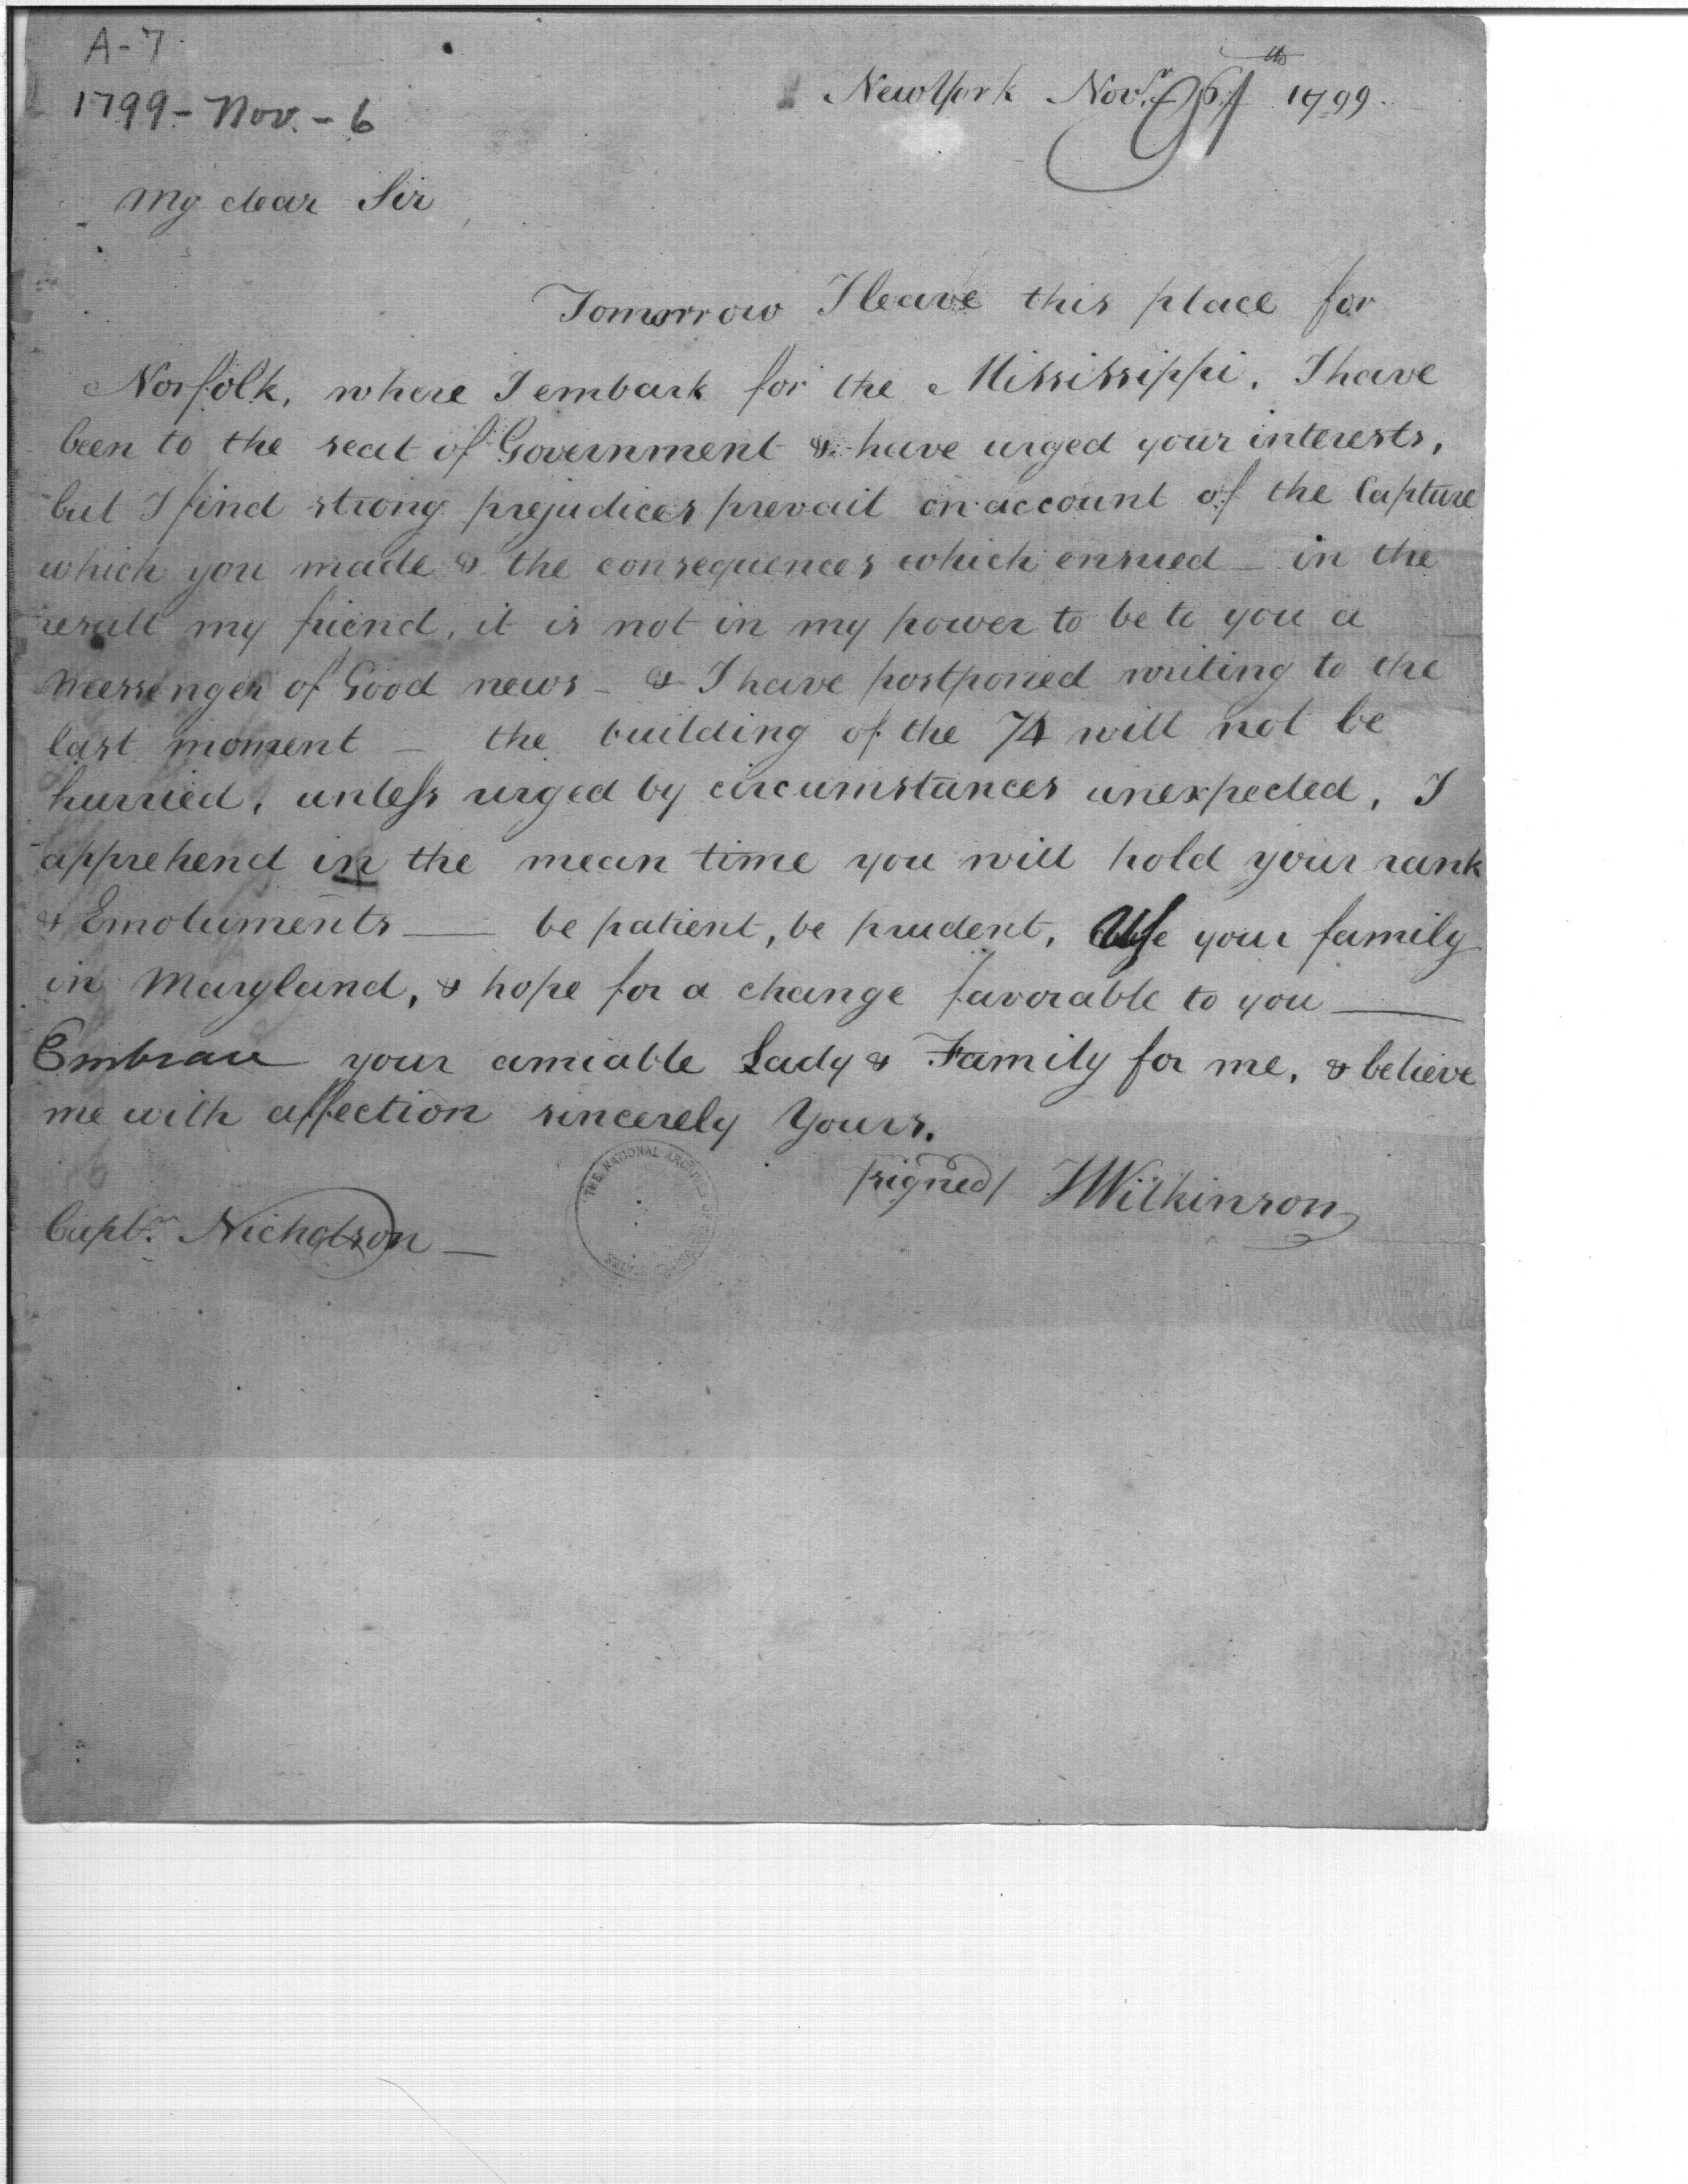 A-7
1799-Nov.-6
New York Novr. 6th 1799.
My dear Sir
Tomorrow I leave this place for
Norfolk, where I embark for the Mississippi. I have
been to the seat of Government & have urged your interests,
but I find strong prejudices prevail on account of the Capture
which you made & the consequences which ensued - in the
result my friend, it is not in my power to be to you a
Messenger of Good news - & I have postponed writing to the
last moment - the building of the 74 will not be
hurried, unless urged by circumstances unexpected, I
apprehend in the mean time you will hold your rank
& Emoluments — be patient, be prudent, Use your family
in Maryland, & hope for a change favorable to you —
Embrace your amiable Lady & Family for me, & believe
me with affection sincerely Yours.
/signed/ JWilkinson
Capt. Nicholson —
THE NATIONAL ARCHIVES OF